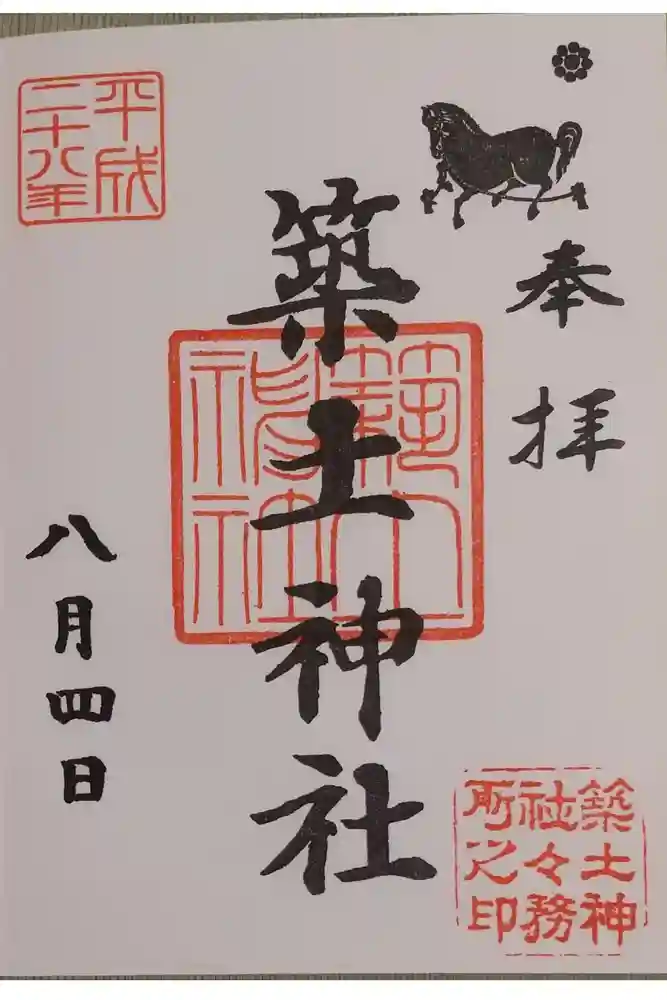 奉拝
築土神社
平成
二十八年
八月四日
築土神
社々務
所之印